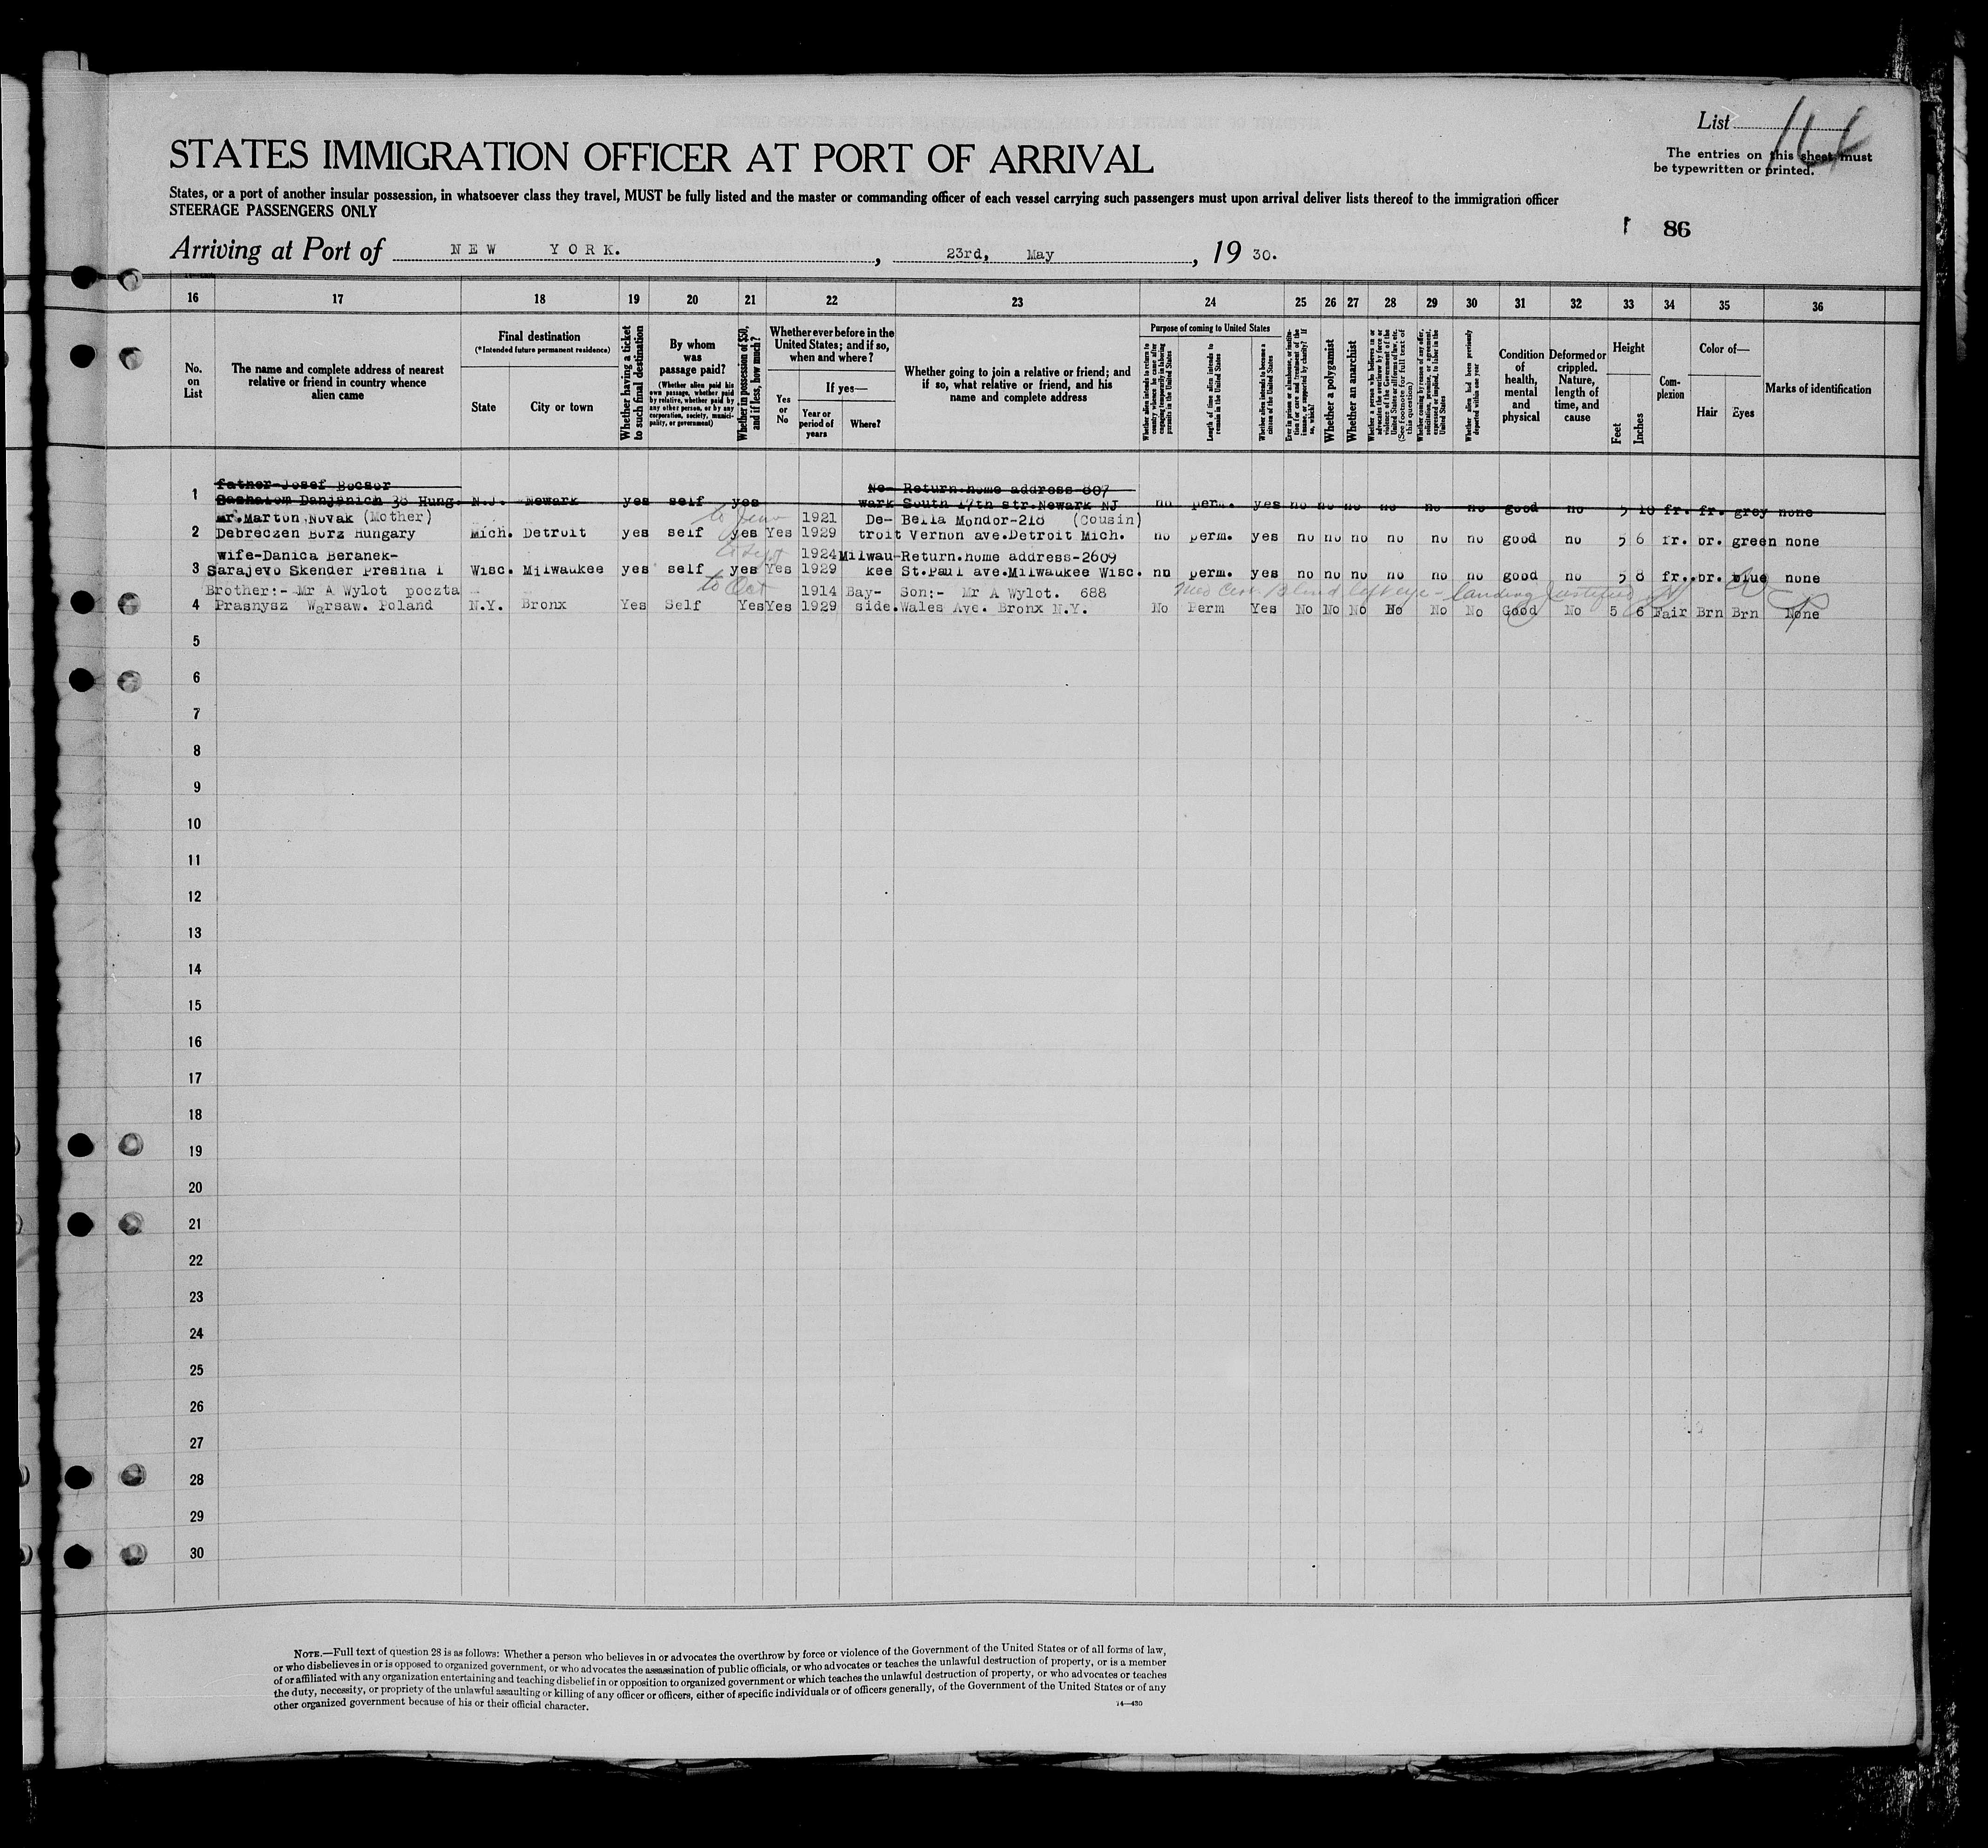 List
The entries on this sheet must
be typewritten or printed.
STATES IMMIGRATION OFFICER AT PORT OF ARRIVAL
States, or a port of another insular possession, in whatsoever class they travel, MUST be fully listed and the master or commanding officer of each vessel carrying such passengers must upon arrival deliver lists thereof to the immigration officer
STEERAGE PASSENGERS ONLY
86
Arriving at Port of NEW YORK. , 23rd, May , 19 30.
16 17 18 19 20 21 22 23 24 25 26 27 28 29 30 31 32 33 34 35 36
No. on List
The name and complete address of nearest
relative or friend in country whence
alien came
Final destination
(*Intended future permanent residence)
State
City or town
Whether having a ticket
to such final destination
By whom
was
passage paid?
(Whether alien paid his
own passage, whether paid
by relative, whether paid by
any other person, or by any
corporation, society, munici-
pality, or government)
Whether in possession of $50,
and if less, how much?
Whether ever before in the
United States; and if so,
when and where?
Yes
or
No
If yes—
Year or
period of
years
Where?
Whether going to join a relative or friend; and
if so, what relative or friend, and his
name and complete address
Purpose of coming to United States
Whether alien intends to return to
country whence he came after
engaging temporarily in laboring
pursuits in the United States
Length of time alien intends to
remain in the United States
Whether alien intends to become a
citizen of the United States
Ever in prison or almshouse, or institu-
tion for care and treatment of the
insane, or supported by charity? If
so, which?
Whether a polygamist
Whether an anarchist
Whether a person who believes in or
advocates the overthrow by force or
violence of the Government of the
United States or all forms of law, etc.
(See footnote for full text of
this question)
Whether coming by reason of any offer,
solicitation, promise, or agreement,
expressed or implied, to labor in the
United States
Whether alien had been previously
deported within one year
Condition
of
health,
mental
and
physical
Deformed or
crippled.
Nature,
length of
time, and
cause
Height
Feet
Inches
Com-
plexion
Color of—
Hair
Eyes
Marks of identification
father-Josef Bocsor Ne- Return.home address-807
1 Danjanich 38 Hung. N.J. Newark yes self yes wark South 17th str.Newark NJ no perm. yes no no no no no no good no 5 10 fr. fr. grey none
mr.Marton Novak (Mother) 1921 De- Bella Mondor-218 (Cousin)
2 Debreczen Borz Hungary Mich. Detroit yes self yes Yes 1929 troit Vernon ave.Detroit Mich. no perm. yes no no no no no no good no 5 6 fr. br. green none
wife-Danica Beranek- to Sept 1924 Milwau-Return.home address-2609
3 Sarajevo Skender Presina 1 Wisc. Milwaukee yes self yes Yes 1929 kee St.Paul ave.Milwaukee Wisc. no perm. yes no no no no no no good no 5 8 fr. br. blue none
Brother:- Mr A Wylot poczta to Oct 1914 Bay- Son:- Mr A Wylot. 688 Med Cert. Blind left eye - landing justified
4 Prasnysz Warsaw. Poland N.Y. Bronx Yes Self Yes Yes 1929 side. Wales Ave. Bronx N.Y. No Perm Yes No No No No No No Good No 5 6 Fair Brn Brn None
5
6
7
8
9
10
11
12
13
14
15
16
17
18
19
20
21
22
23
24
25
26
27
28
29
30
NOTE.—Full text of question 28 is as follows: Whether a person who believes in or advocates the overthrow by force or violence of the Government of the United States or of all forms of law,
or who disbelieves in or is opposed to organized government, or who advocates the assassination of public officials, or who advocates or teaches the unlawful destruction of property, or is a member
of or affiliated with any organization entertaining and teaching disbelief in or opposition to organized government or which teaches the unlawful destruction of property, or who advocates or teaches
the duty, necessity, or propriety of the unlawful assaulting or killing of any officer or officers, either of specific individuals or of officers generally, of the Government of the United States or of any
other organized government because of his or their official character.
14—430